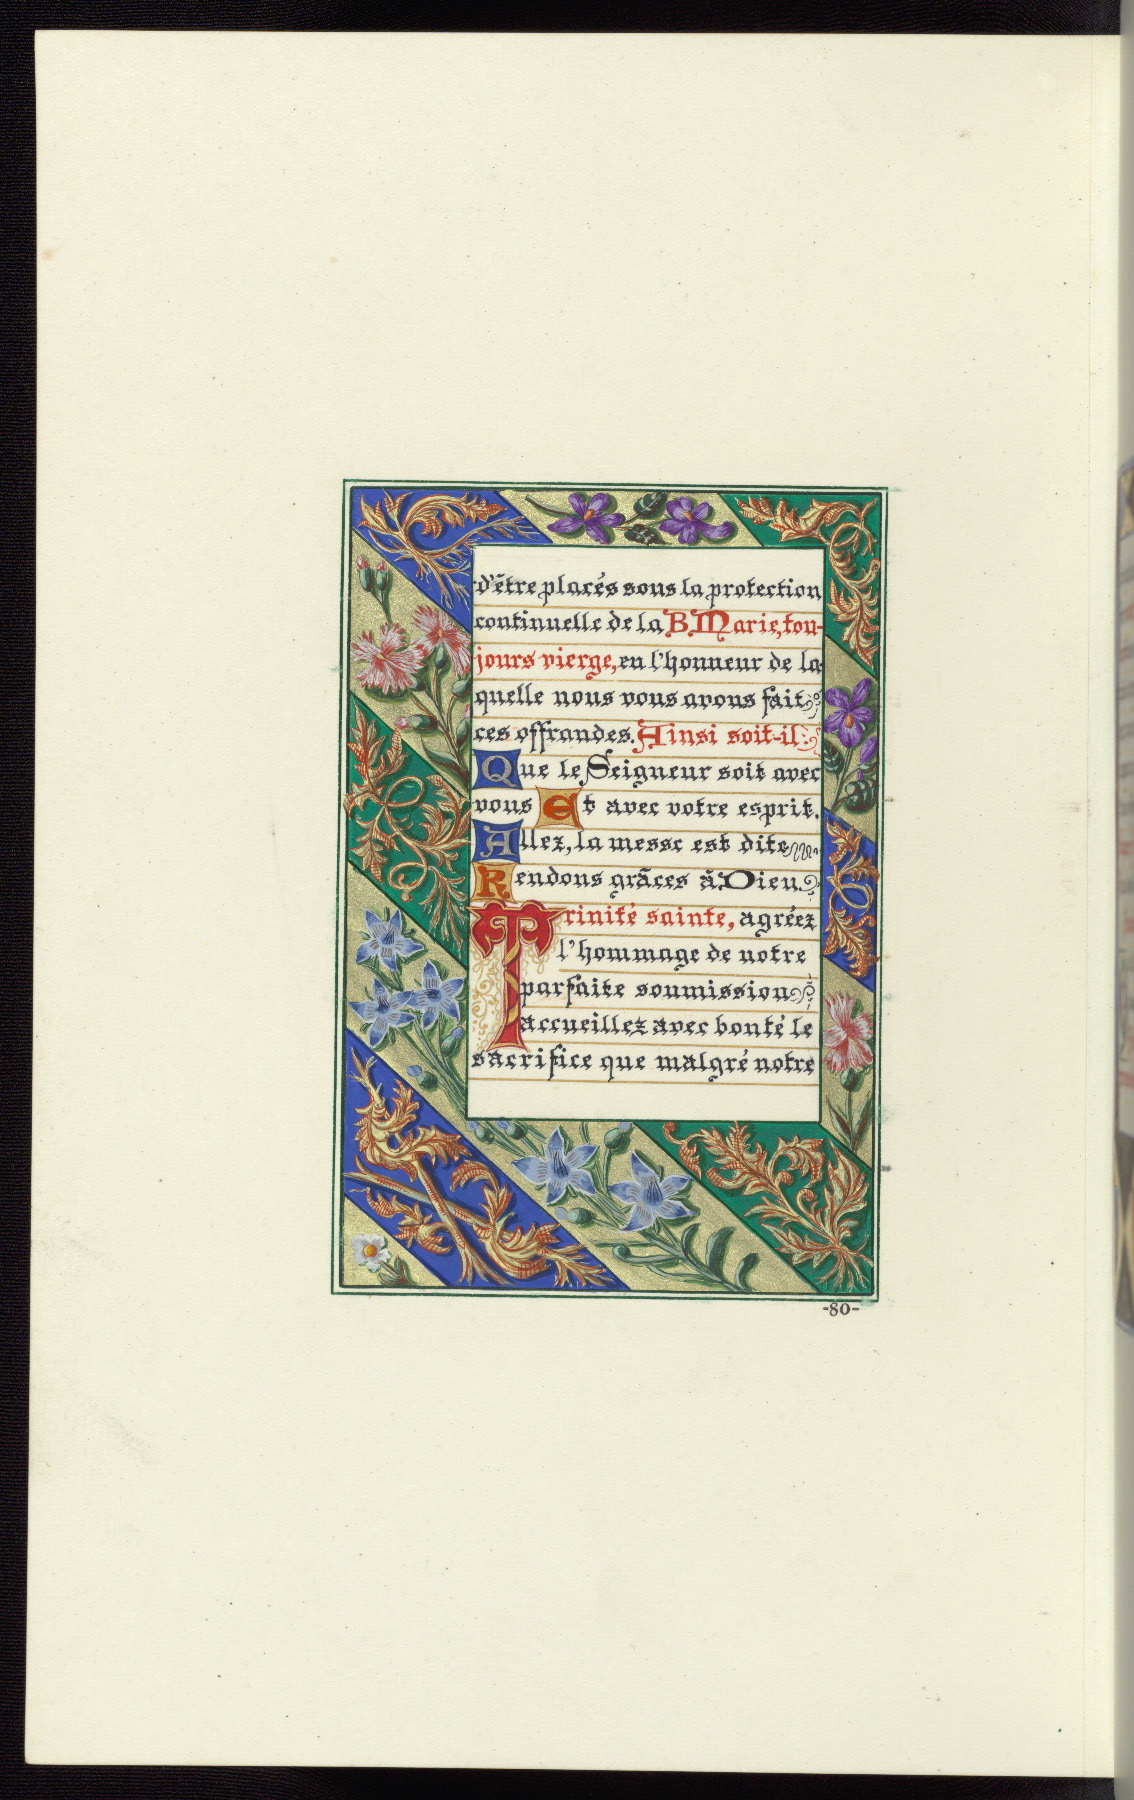 d'être placés sous la protection
continuelle de la B. Marie, tou-
jours vierge, en l'honneur de la
quelle nous vous avons fait
ces offrandes. Ainsi soit-il.
Que le Seigneur soit avec
vous Et avec votre esprit.
Allez, la messe est dite
Rendons grâces à Dieu.
Trinité sainte, agréez
l'hommage de notre
parfaite soumission
accueillez avec bonté le
sacrifice que malgré notre
-80-